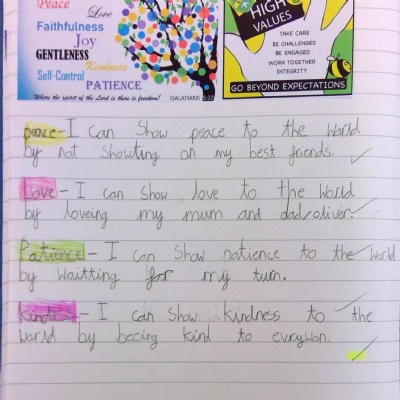 Peace
Love
Faithfulness
Joy
GENTLENESS
Kindness
Self-Control
PATIENCE
Where the spirit of the Lord is there is freedom!
GALATIANS 5:22
HIGH
VALUES
TAKE CARE
BE CHALLENGED
BE ENGAGED
WORK TOGETHER
INTEGRITY
GO BEYOND EXPECTATIONS
peace - I can show peace to the world
by not showting on my best friends.
Love - I can show love to the world
by loveing my mum and dad/oliver.
Patience - I can show patience to the world
by waitting for my turn.
kindnes - I can show kindness to the
world by beeing kind to evrywon.